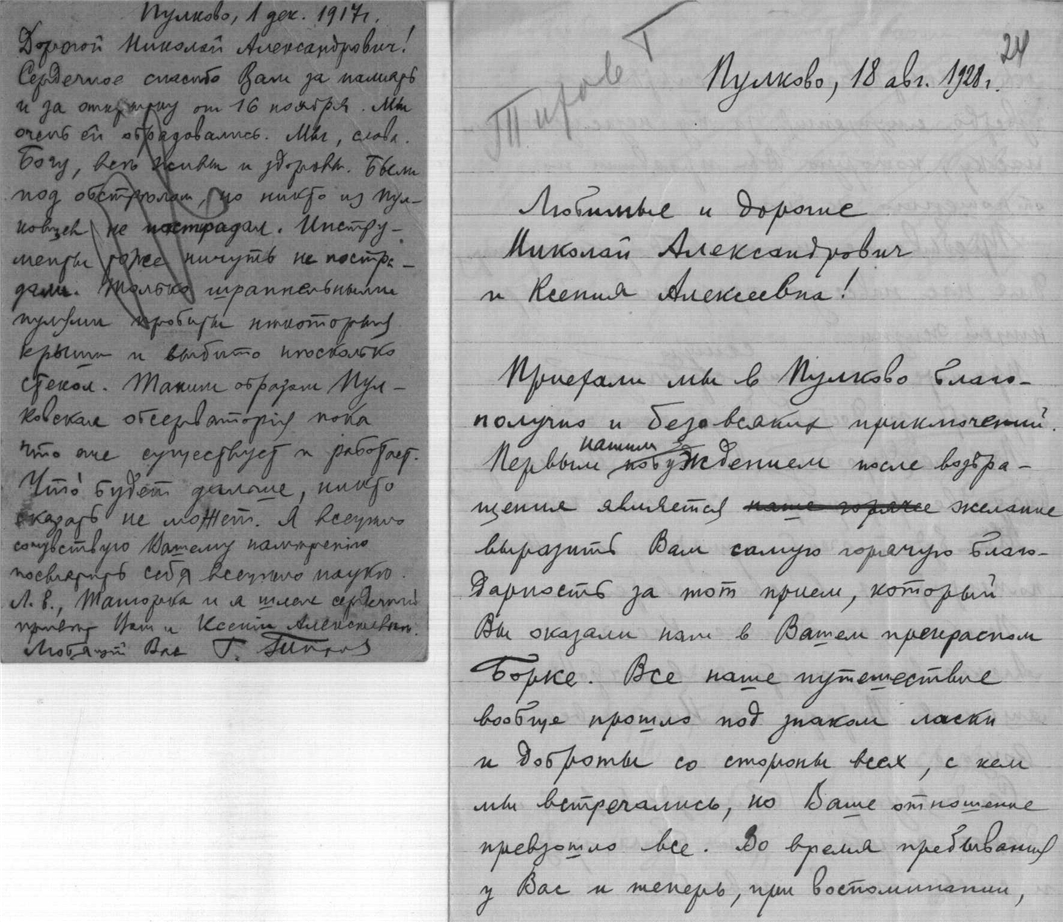 Пулково, 1 дек. 1917г.
Дорогой Николай Александрович!
Сердечное спасибо Вам за память
и за открытку от 16 ноября. Мы
очень ей обрадовались. Мы, слава
Богу, все живы и здоровы. Были
под обстрелом, но никто из пул-
ковцев не пострадал. Инстру-
менты тоже ничуть не постра-
дали. Только шрапнельными
пулями пробиты некоторыя
крыши и выбито несколько
стекол. Таким образом Пул-
ковская обсерваторія пока
что еще существует и работает.
Что будет дальше, никто
сказать не может. Я всецело
сочувствую Вашему намерению
посвятить себя всецело науке.
Л. В., и я шлем сердечный
привет Вам и Ксении Алексеевне.
Любящий Вас Г. Тихов
24
Тихов Г
Пулково, 18 авг. 1928г.
Любимые и дорогие
Николай Александрович
и Ксения Алексеевна!
Приехали мы в Пулково благо-
получно и безо всяких приключений.
нашим
Первым побуждением после возвра-
щения является наше горячее желание
выразить Вам самую горячую благо-
дарность за тот прием, который
Вы оказали нам в Вашем прекрасном
Борке. Все наше путешествие
вообще прошло под знаком ласки
и доброты со стороны всех, с кем
мы встречались, но Ваше отношение
превзошло все. Во время пребывания
у Вас и теперь, при воспоминании,